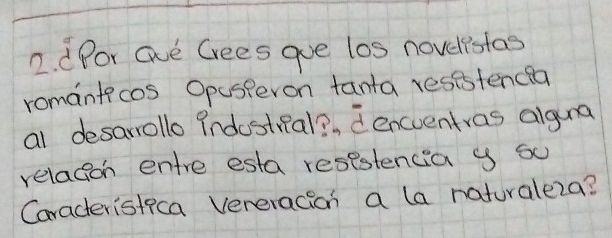 2. ¿Por qué Crees que los novelistas
románticos opusieron tanta resistencia
al desarrollo industrial?, ¿encuentras alguna
relación entre esta resistencia y su
Característica veneración a la naturaleza?